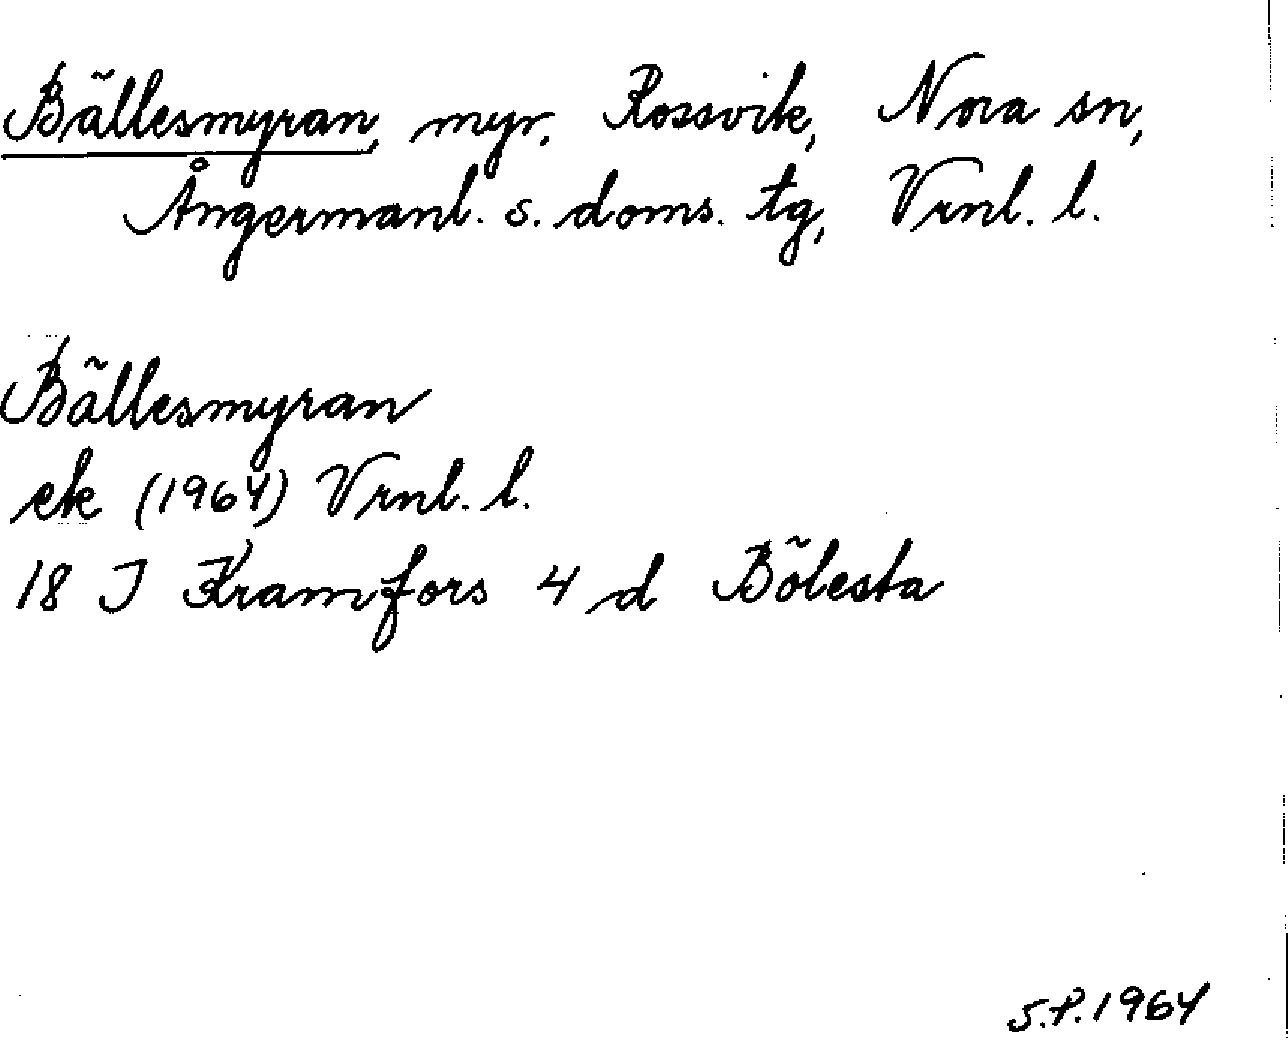 Bällesmyran, myr, Rossvik, Nora sn,
Ångermanl. s. doms. tg, Vrnl. l.
Bällesmyran
ek (1964) Vrnl. l.
18 J Kramfors 4 d Bölesta
S.P. 1964